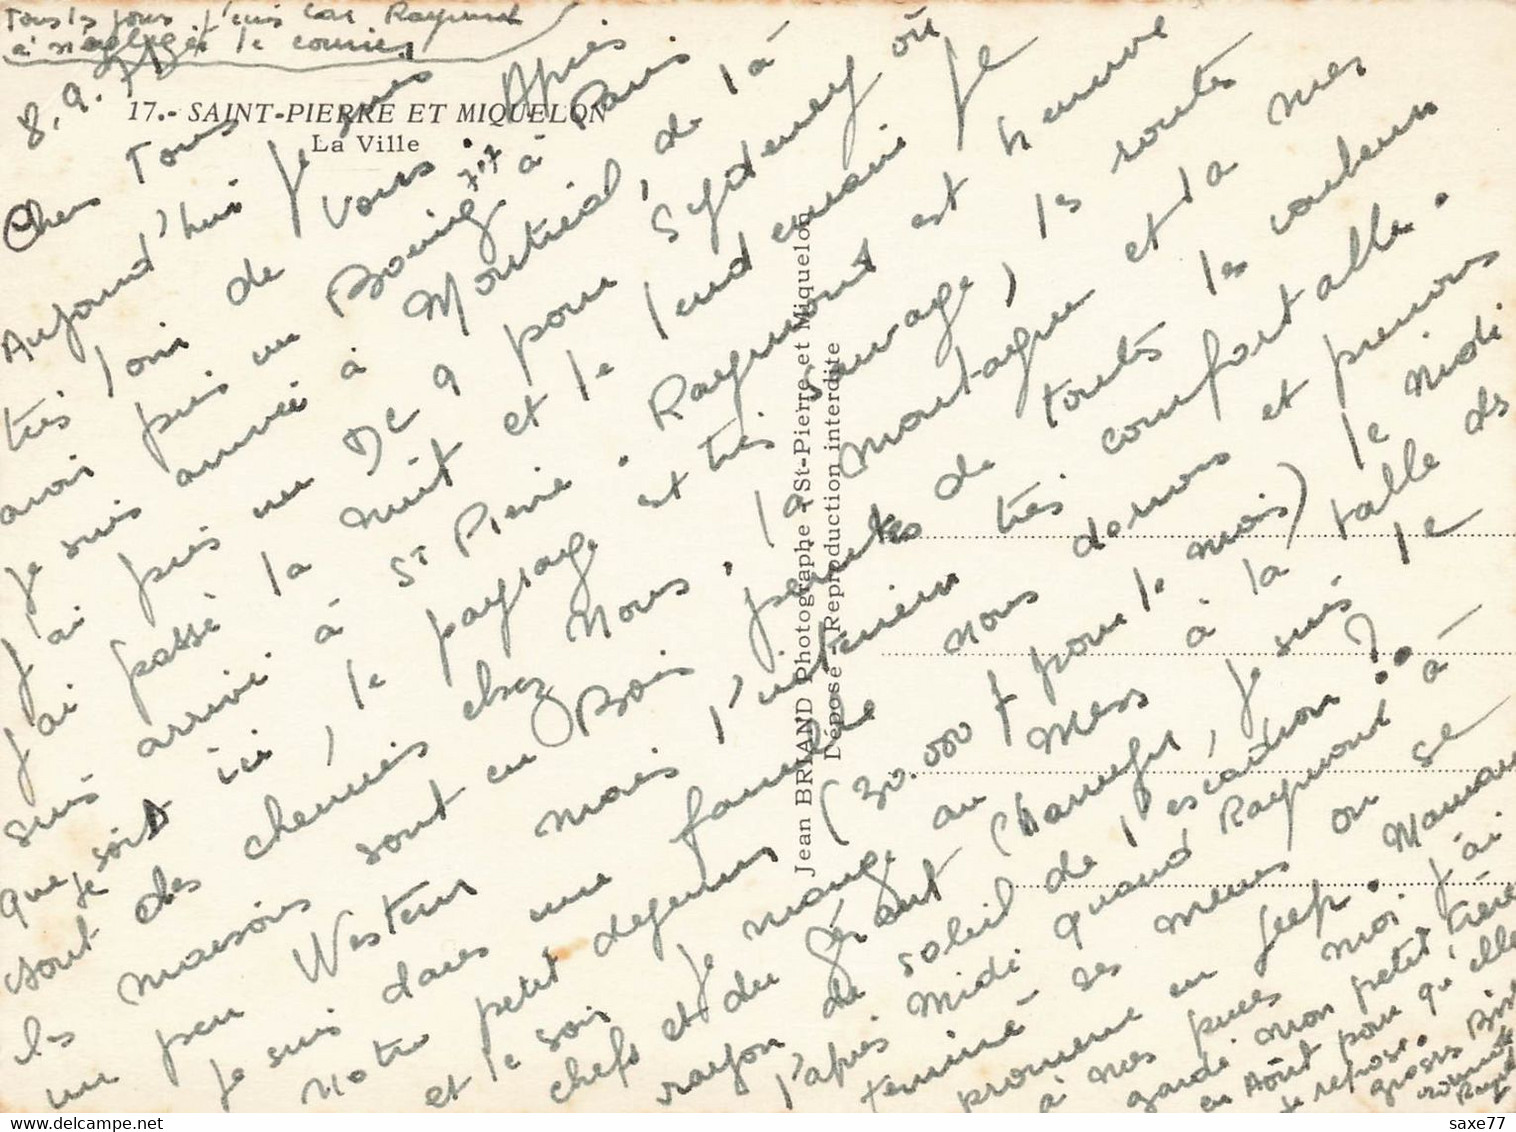 Tous les jours j'écris car Raymond
a négligé le courrier
8.9.
17.- SAINT-PIERRE ET MIQUELON
La Ville
Chers Tous
Aujourd'hui je suis
très loin de vous. Après
avoir pris un Boeing 707 à Paris
je suis arrivée à Montréal de là
j'ai pris un DC 9 pour Sydeney où
j'ai passé la nuit et le lendemain je
suis arrivé à St Pierre. Raymond est heureux
que je sois ici, le paysage est très sauvage, les routes
sont des chemins chez nous, la montagne et la mer
les maisons sont en Bois peintes de toutes les couleurs
un peu Western mais l'intérieur très confortable.
Je suis dans une famille nous dormons et prenons
notre petit dejeuner (30.000 f pour le mois) le midi
et le soir je mange au Mess à la table des
chefs et du gérant (Chauffr, je suis le
rayon de soleil de l'escadron ?
l'après midi quand Raymond à
terminé ses menus on se
promène en jeep. Maman
à nos puces moi j'ai
gardé mon petit frère
en Août pour qu'elle
se repose.
grosses Bises
Raymonde
Jean BRIAND Photographe à St-Pierre et Miquelon
Déposé - Reproduction interdite
saxe77